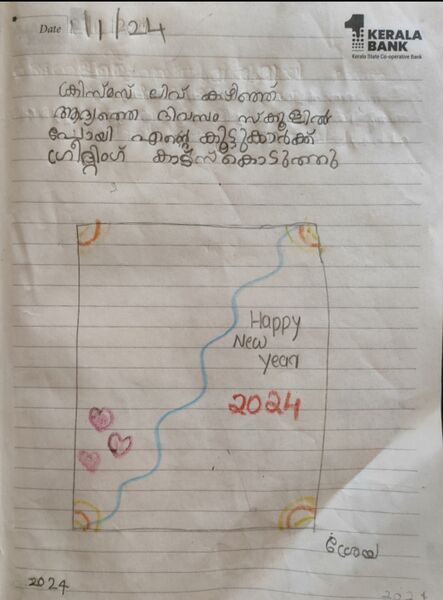 Date 1/1/24
1 KERALA
BANK
Kerala State Co-operative Bank
ക്രിസ്മസ് ലിവ് കഴിഞ്ഞ്
ആദ്യത്തെ ദിവസം സ്കൂളിൽ
പോയി എന്റെ കൂട്ടുകാർക്ക്
ഗ്രീറ്റിംഗ് കാർഡ്സ് കൊടുത്തു
Happy
New
Year
2024
ശ്രേയ
2024
2024